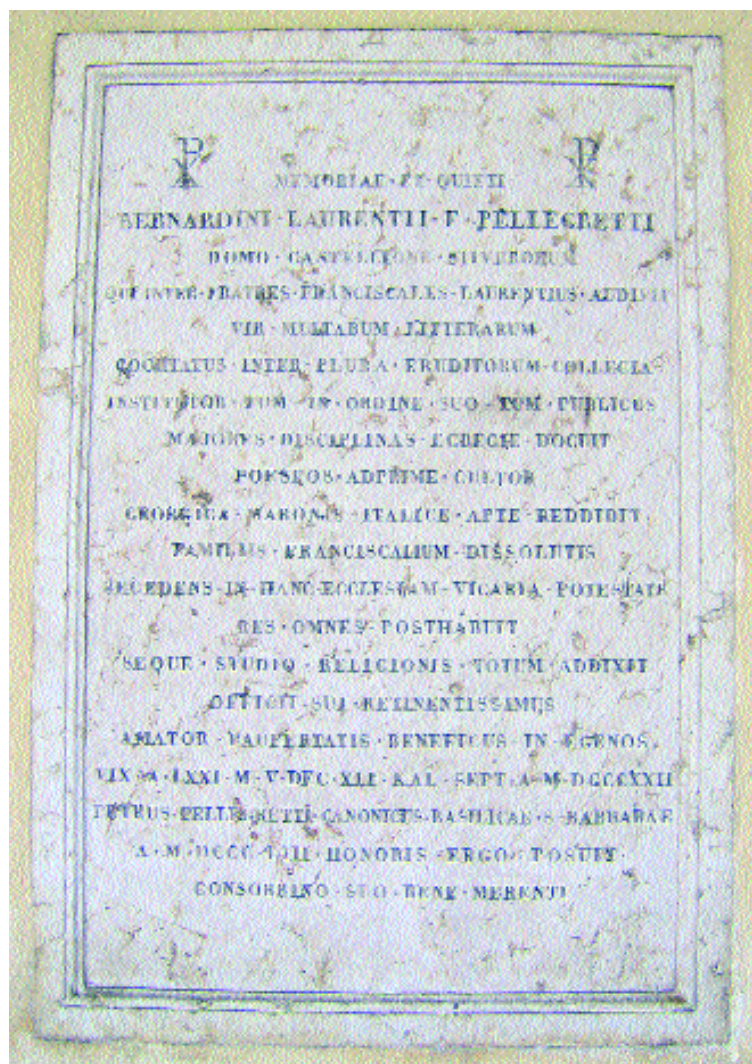 MEMORIAE · ET · QUIETI
BERNARDINI · LAURENTII · F · PELLEGRETTI
DOMO · CASTELLIONE · STIVERORUM
QUI · INTER · FRATRES · FRANCISCALES · LAURENTIUS · AUDIVIT
VIR · MULTARUM · LITTERARUM
COOPTATUS · INTER · PLURA · ERUDITORUM · COLLEGIA
INSTITUTOR · TUM · IN · ORDINE · SUO · TUM · PUBLICUS
MAJORES · DISCIPLINAS · EGREGIE · DOCUIT
POESEOS · ADPRIME · CULTOR
GEORGICA · MARONIS · ITALICE · APTE · REDDIDIT
FAMILIIS · FRANCISCALIUM · DISSOLUTIS
SECEDENS · IN · HANC · ECCLESIAM · VICARIA · POTESTATE
RES · OMNES · POSTHABUIT
SEQUE · STUDIO · RELIGIONIS · TOTUM · ADDIXIT
OFFICII · SUI · RETINENTISSIMUS
AMATOR · PAUPERTATIS · BENEFICUS · IN · EGENOS
VIX · A · LXXI · M · V · DEC · XII · KAL · SEPT · A · M · DCCCXXII
PETRUS · PELLEGRETTI · CANONICUS · BASILICAE · S · BARBARAE
A · M · DCCC · HONORIS · ERGO · POSUIT
CONSOBRINO · SUO · BENE · MERENTI